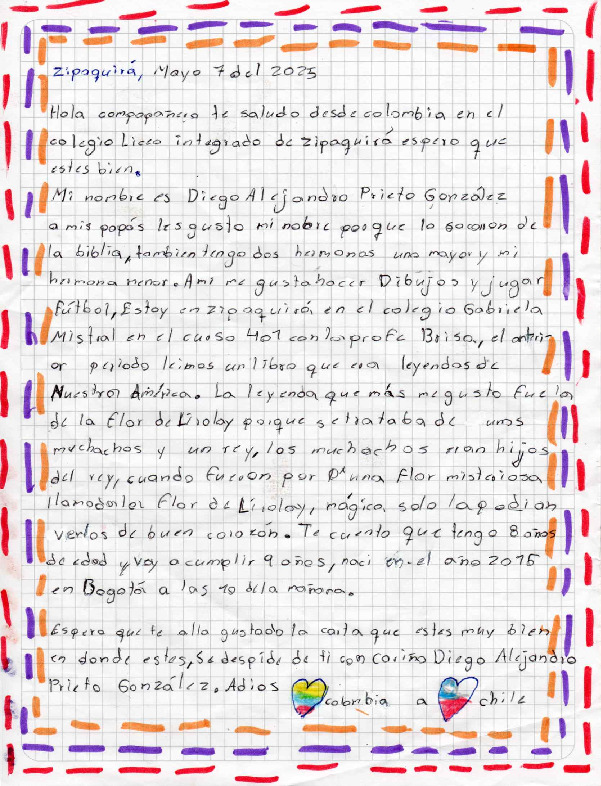 Zipaquirá, Mayo 7 del 2025
Hola compopañero te saludo desde colombia en el
colegio Liceo integrado de zipaquirá espero que
estes bien.
Mi nombre es Diego Alejandro Prieto González
a mis papás les gusto mi nobre porque lo sacaron de
la biblia, tambien tengo dos hermanas una mayor y mi
hermana menor. Ami me gusta hacer Dibujos y jugar
fútbol, Estoy en zipaquirá en el colegio Gabriela
Mistral en el curso 401 con la profe Brisa, el anteri
or periodo leimos un libro que era leyendas de
Nuestra América. La leyenda que más me gusto fue la
de la flor de Lirolay porque se trataba de unos
muchachos y un rey, los muchachos eran hijos
del rey, cuando fueron por una flor misteriosa
llamada la flor de Lirolay, mágica solo la podian
verlos de buen corazón. Te cuento que tengo 8 años
de edad y voy a cumplir 9 años, naci en el año 2015
en Bogotá a las 10 de la mañana.
Espero que te alla gustado la carta que estes muy bien
en donde estes, Se despide de ti con cariño Diego Alejandro
Prieto González. Adios colombia a chile